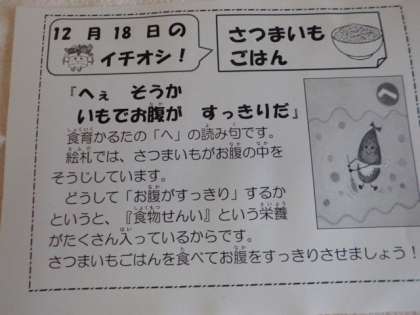 12月18日の
イチオシ！
さつまいも
ごはん
『へぇ　そうか
いもでお腹が　すっきりだ』
食育かるたの「へ」の読み句です。
絵札では、さつまいもがお腹の中を
そうじしています。
どうして「お腹がすっきり」するか
というと、『食物せんい』という栄養
がたくさん入っているからです。
さつまいもごはんを食べてお腹をすっきりさせましょう！
へ